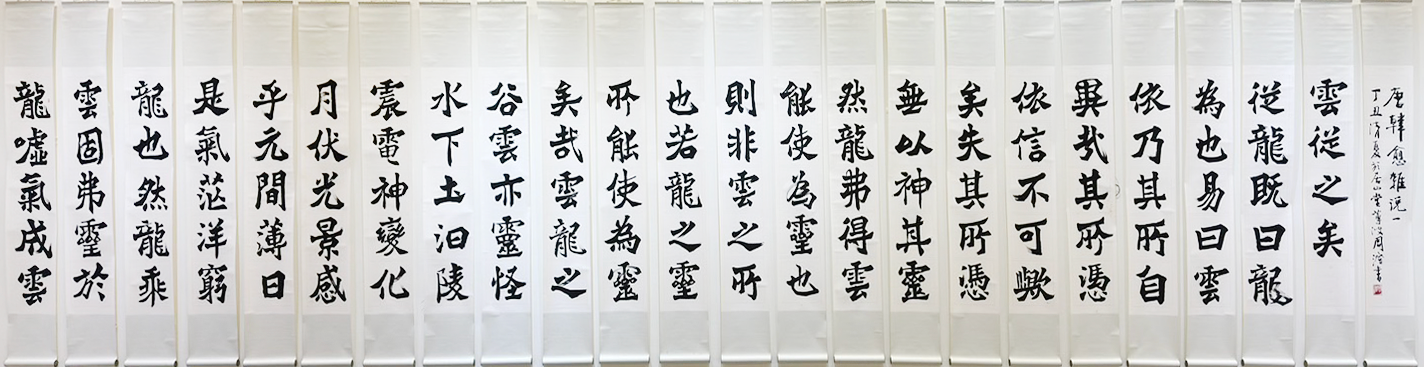 龍噓氣成雲
雲固弗靈於
龍也然龍乘
是氣茫洋窮
乎元間薄日
月伏光景感
震電神變化
水下土汩陵
谷雲亦靈怪
矣哉雲龍之
所能使為靈
也若龍之靈
則非雲之所
能使為靈也
然龍弗得雲
無以神其靈
矣失其所憑
依信不可歟
異哉其所憑
依乃其所自
為也易曰雲
從龍既曰龍
雲從之矣
唐韓愈雜說一
丁丑清夏於